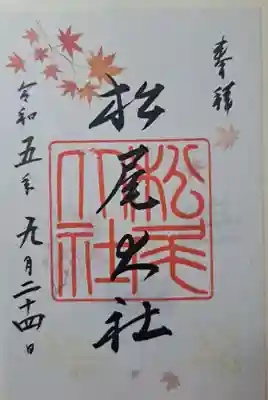 奉拝
松尾大社
松尾大社
令和五年九月二十四日